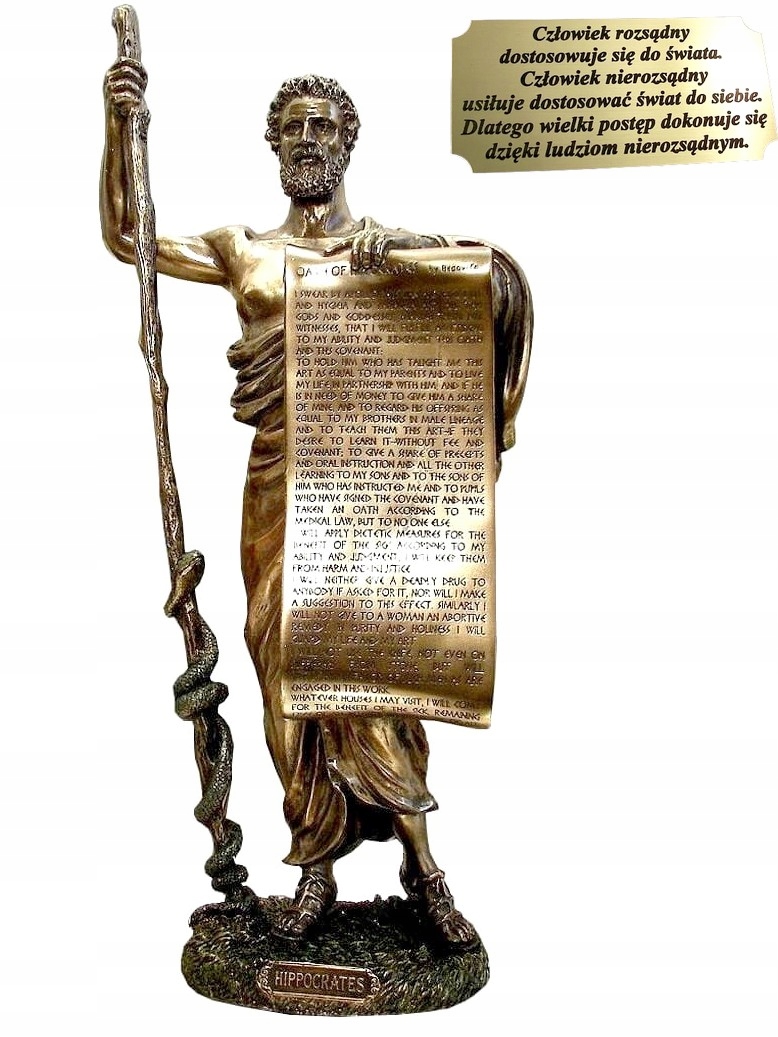 Człowiek rozsądny
dostosowuje się do świata.
Człowiek nierozsądny
usiłuje dostosować świat do siebie.
Dlatego wielki postęp dokonuje się
dzięki ludziom nierozsądnym.
OF
I SWEAR BY
AND HYGIEIA AND
GODS AND GODDESSES
WITNESSES, THAT I WILL
TO MY ABILITY AND JUDGMENT THIS OATH
AND THIS COVENANT:
TO HOLD HIM WHO HAS TAUGHT ME THIS
ART AS EQUAL TO MY PARENTS AND TO LIVE
MY LIFE IN PARTNERSHIP WITH HIM, AND IF HE
IS IN NEED OF MONEY TO GIVE HIM A SHARE
OF MINE, AND TO REGARD HIS OFFSPRING AS
EQUAL TO MY BROTHERS IN MALE LINEAGE
AND TO TEACH THEM THIS ART-IF THEY
DESIRE TO LEARN IT-WITHOUT FEE AND
COVENANT; TO GIVE A SHARE OF PRECEPTS
AND ORAL INSTRUCTION AND ALL THE OTHER
LEARNING TO MY SONS AND TO THE SONS OF
HIM WHO HAS INSTRUCTED ME AND TO PUPILS
WHO HAVE SIGNED THE COVENANT AND HAVE
TAKEN AN OATH ACCORDING TO THE
MEDICAL LAW, BUT TO NO ONE ELSE
WILL APPLY DIETETIC MEASURES FOR THE
BENEFIT OF THE SICK ACCORDING TO MY
ABILITY AND JUDGMENT; I WILL KEEP THEM
FROM HARM AND INJUSTICE
I WILL NEITHER GIVE A DEADLY DRUG TO
ANYBODY IF ASKED FOR IT, NOR WILL I MAKE
A SUGGESTION TO THIS EFFECT. SIMILARLY I
WILL NOT GIVE TO A WOMAN AN ABORTIVE
REMEDY. IN PURITY AND HOLINESS I WILL
GUARD MY LIFE AND MY ART
I WILL NOT USE THE KNIFE, NOT EVEN ON
WILL
ENGAGED IN THIS WORK
WHATEVER HOUSES I MAY VISIT, I WILL COME
FOR THE BENEFIT OF THE SICK, REMAINING
HIPPOCRATES